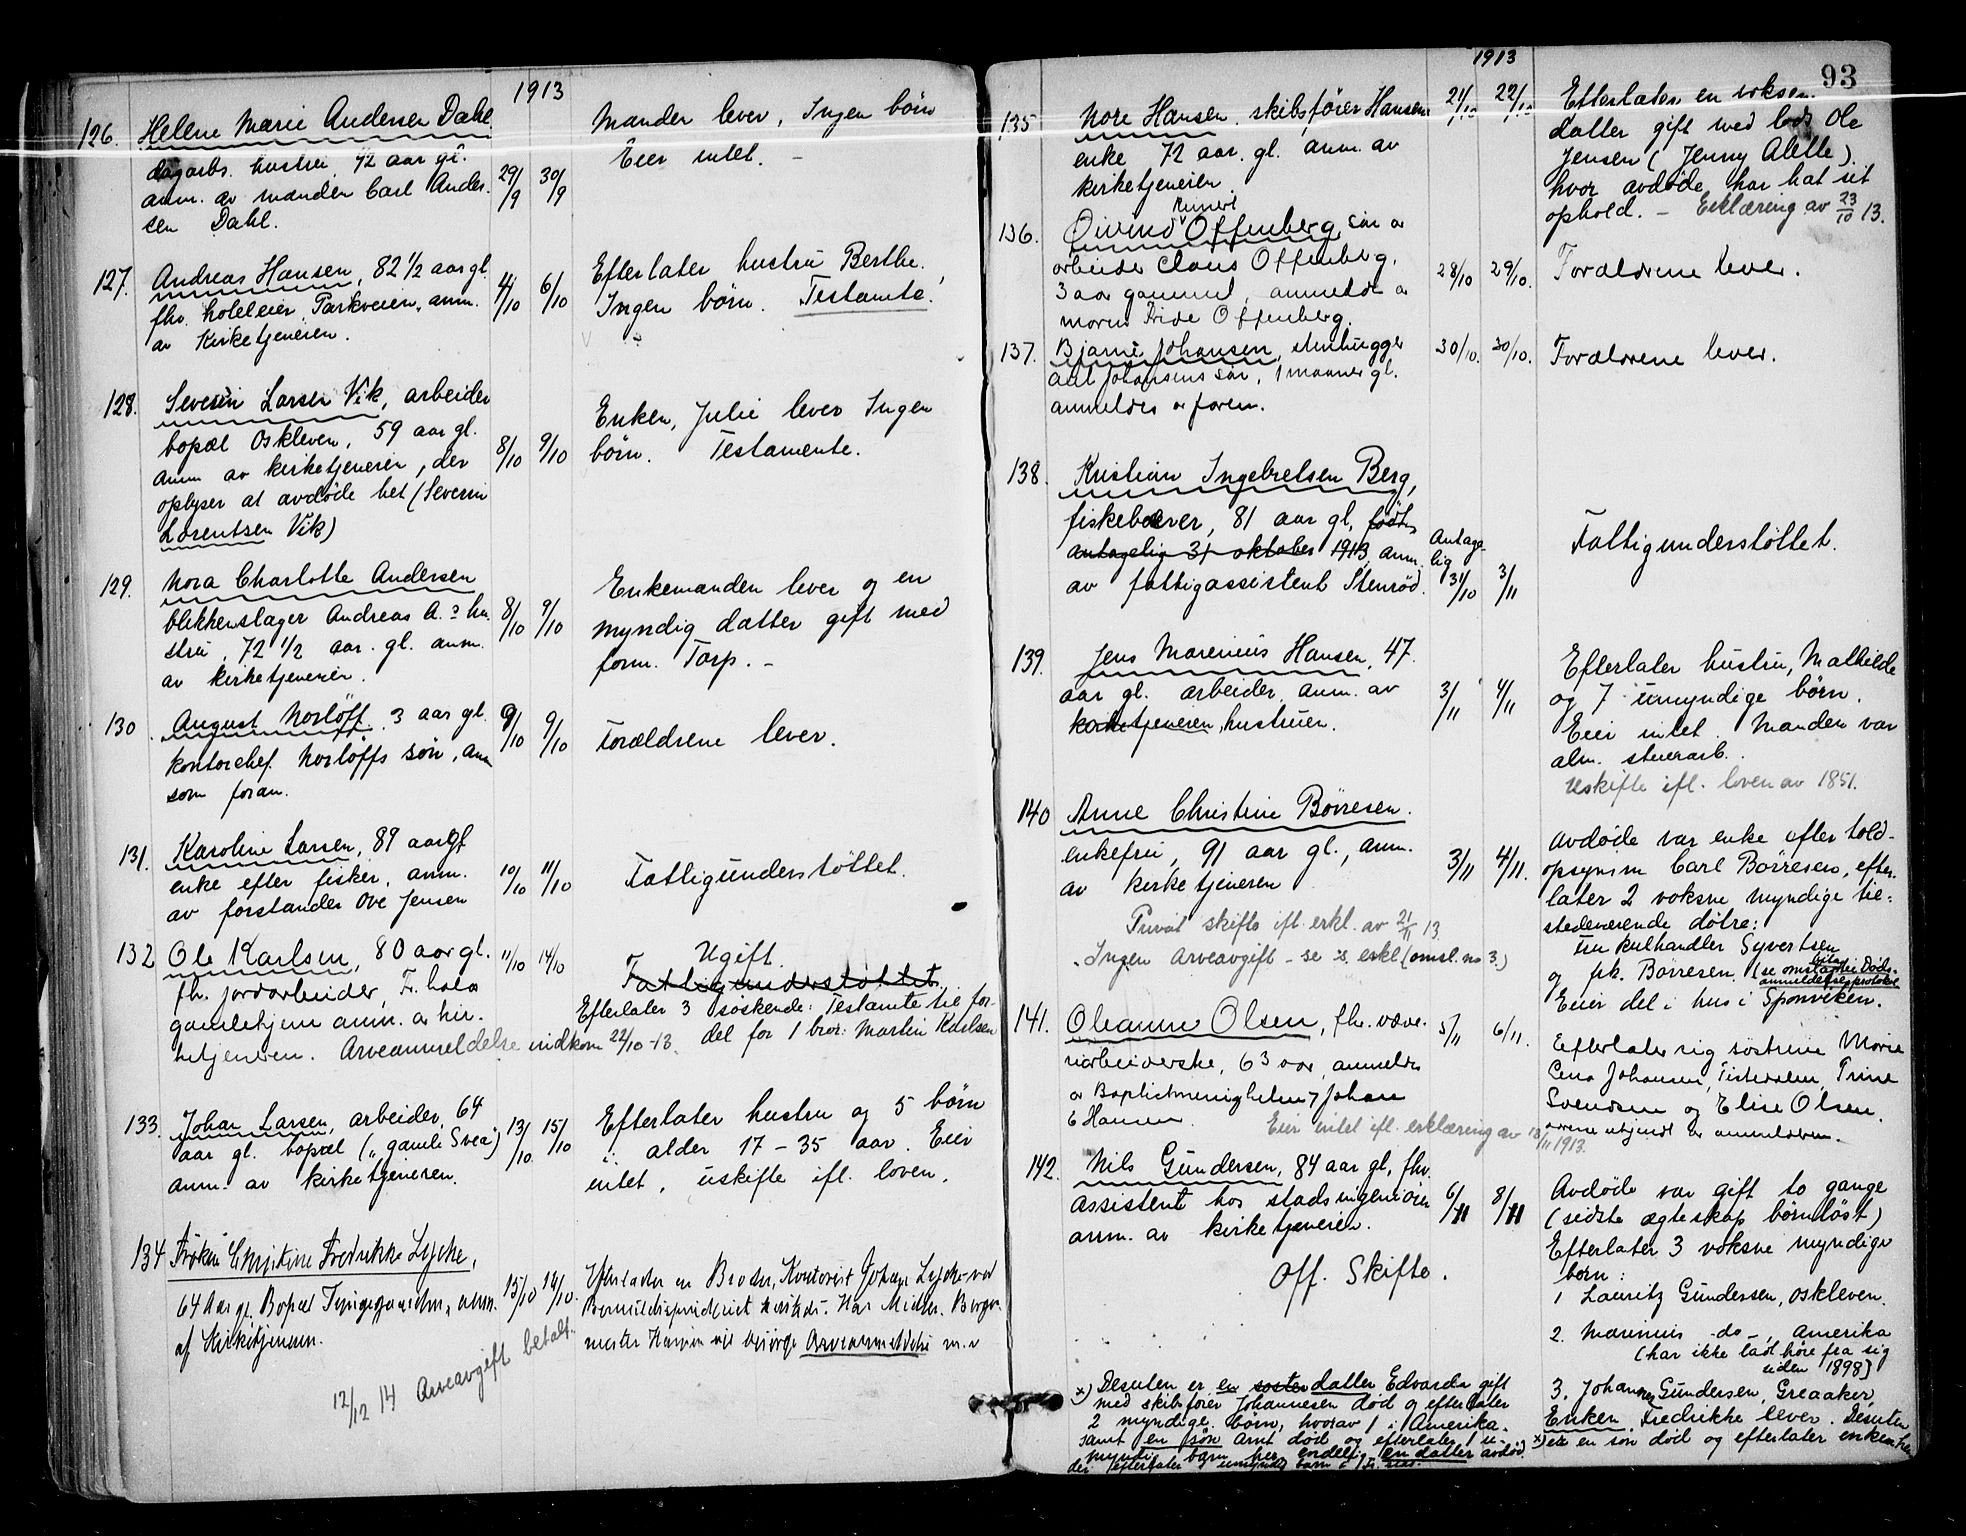 1913
126. Helene Marie Andersen Dahl
dagarb. hustru 72 aar gl.
anm. av manden Carl Ander-
sen Dahl.
29/9 30/9
Manden lever, Ingen børn
Eier intet. -
127. Andreas Hansen, 82 1/2 aar gl.
fhv. hoteleier, Parkveien, anm.
av Kirketjeneren.
4/10 6/10
Efterlater hustru Berthe.
Ingen børn. Testamte!
128. Severin Larsen Vik, arbeider
bopæl Oskleven, 59 aar gl.
anm av kirketjeneren, der
oplyser at avdøde het (Severin
Lorentsen Vik)
8/10 9/10
Enken, Julie lever Ingen
børn. Testamente.
129. Nora Charlotte Andersen
blikkenslager Andreas A.s hu-
stru, 72 1/2 aar. gl. anm.
av kirketjenerer.
8/10 9/10
Enkemanden lever og en
myndig datter gift med
form. Torp. -
130. August Norløff 3 aar gl.
kontorchef Norløffs søn, anm
som foran.
9/10 9/10
Forældrene lever.
131. Karoline Larsen, 89 aar gl
enke efter fisker, anm.
av forstander Ove Jensen
10/10 11/10
Fattigunderstøttet.
132 Ole Karlsen, 80 aar gl.
fhv. jordarbeider, Fr.hald
gamlehjem anm. av kir-
ketjeneren. Arveanmeldelse indkom 22/10-13.
11/10 14/10
Ugift.
Fattigunderstøttet.
Efterlater 3 søskende: Testamte til for-
del for 1 bror: Martin Karlsen
133. Johan Larsen, arbeider, 64
aar gl. bopæl („gamle Svea")
anm. av kirketjeneren.
13/10. 15/10
Efterlater hustru og 5 børn
i alder 17 - 35 aar. Eier
intet, uskifte ifl. loven.
134 Frøken Christine Fredrikke Lycke,
64 Aar gl. Bopæl anm.
af Kirketjeneren.
15/10 14/10.
Efterlader en Broder, Kontorist Johan Lycke ved
Har Borger-
mester vil besørge Arveanmeldelse m.v
12/12 14 Arveavgift betalt.
1913
93
135 Nore Hansen, skibsfører Hansens
enke 72 aar. gl. anm. av
kirketjeneren
21/10 22/10
Efterlater en voksen
datter gift med lods Ole
Jensen (Jenny Alette)
hvor avdøde har hat sit
ophold. - Erklæring av 23/10 13.
136. Øivind Offenberg, søn av
arbeider Claus Offenberg.
3 aar gammel, anmeldt av
moren Fride Offenberg.
28/10 29/10.
Forældrene lever.
137. Bjarne Johansen, stenhugger
Johansens søn, 1 maaned gl.
anmeldes av faren.
30/10. 30/10.
Forældrene lever.
138. Kristian Ingebretsen Berg,
fiskebærer, 81 aar gl, født
antagelig 31 oktober 1913, anm.
av fattigassistent Stenrød.
Antage-
lig
31/10 3/11
Fattigunderstøttet.
139. Jens Marenius Hansen, 47.
aar gl. arbeider, anm. av
kirketjeneren, hustruen.
3/11 4/11
Efterlater hustru, Mathilde
og 7 umyndige børn.
Eier intet. Manden var
alm. stuerarb.
Uskifte ifl. loven av 1851.
140 Anne Christine Børresen.
enkefru, 91 aar gl., anm.
av kirketjeneren
3/11 4/11.
Privat skifte ifl. erkl. av 21/11 13
Ingen Arveavgift - se erkl (omsl. no 3.)
Avdøde var enke efter told-
opsynsm Carl Børresen, efter-
later 2 voksne myndige til-
stedeværende døtre:
fru kulhandler Syvertsen
og frk. Børresen (se omslag til Døds-
anmeldelsesprotokol
Eier del i hus i Sponviken.
141. Oleanne Olsen, fhv. væve-
riarbeiderske, 63 aar, anmeldes
av Baptistmenigheten v/ Johan
G Hansen
5/11 6/11.
Efterlater sig søstrene Marie
Lena Johansen, Tistedalen, Trine
Svendsen og Elise Olsen.
Eier intet ifl. erklæring av 18/11 1913.
142. Nils Gundersen, 84 aar gl, fhv.
assistent hos stadsingeniøren
anm. av kirketjeneren.
6/11 8/11
Off. Skifte.
Avdøde var gift to gange
(sidste ægteskap børnløst)
Efterlater 3 voksne myndige
børn:
1 Lauritz Gundersen, Oskleven.
2. Marenius -do-, Amerika
(har ikke ladt høre fra sig
siden 1898)
3. Johannes Gundersen, Greaaker,
Enken Fredrikke lever. Desuten
x) er en søn død og efterlater enken
x) Desuten er en søster datter Edvarda gift
med skibsfører Johannesen død og efterlater
2 myndige børn, hvorav 1 i Amerika.
samt en søn Arnt død og efterlater 1 u-
myndig barn her, endelig en datter avdød
der efterlater umyndig barn